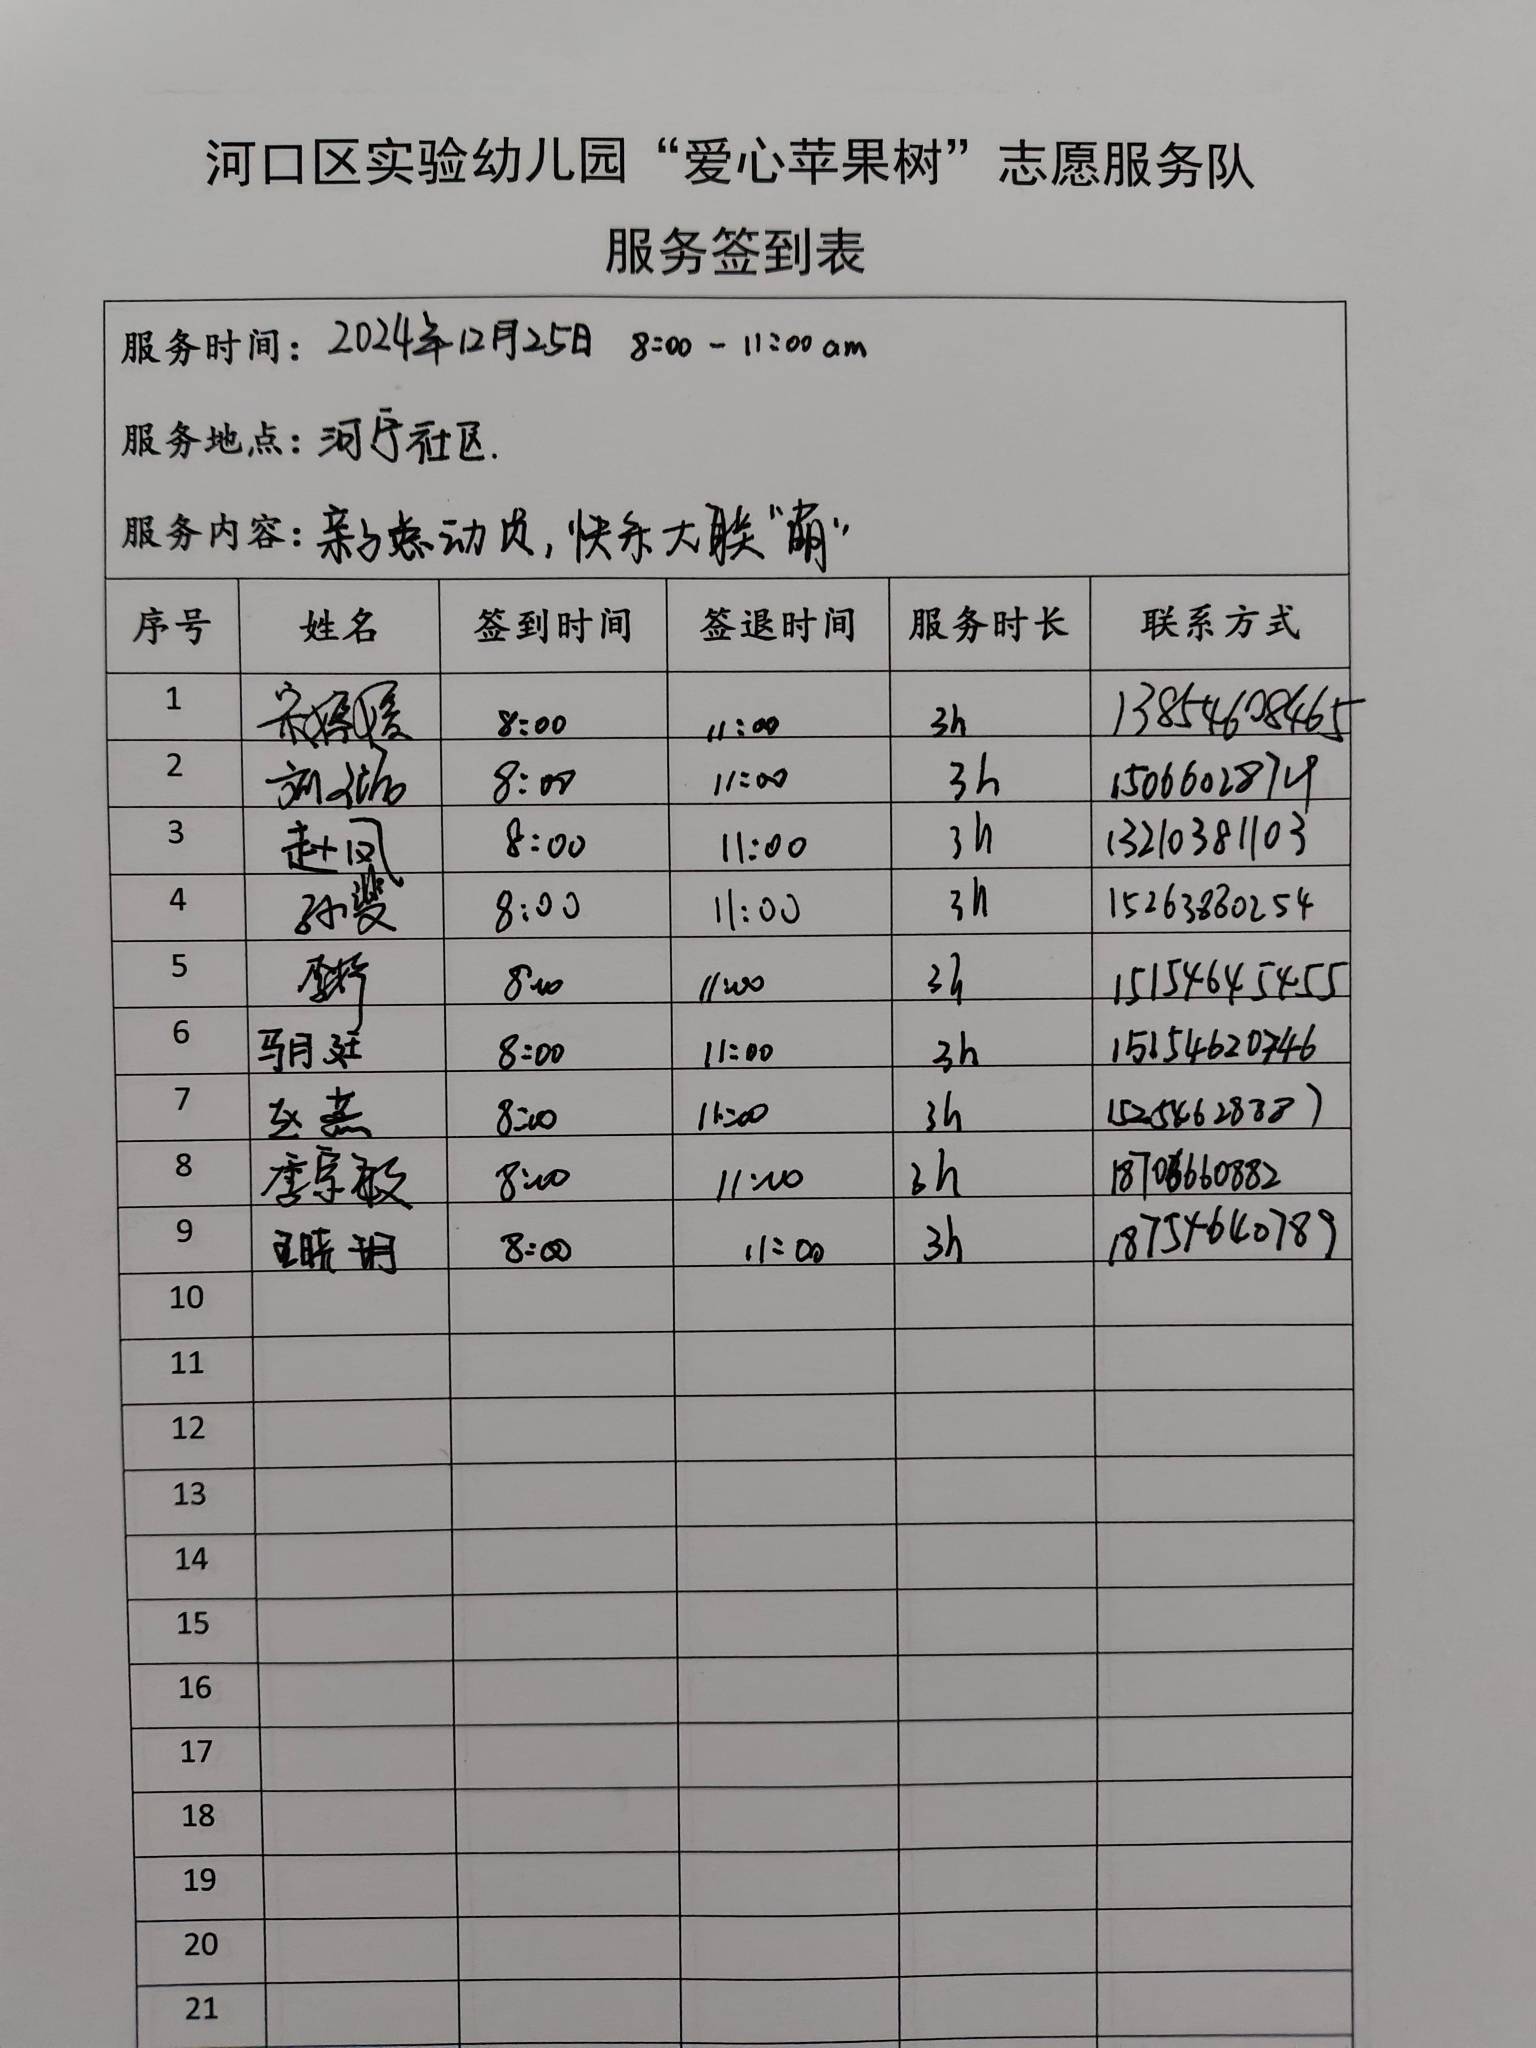 河口区实验幼儿园“爱心苹果树”志愿服务队
服务签到表
服务时间：2024年12月25日 8:00 - 11:00 am
服务地点：河庁社区.
服务内容：亲子总动员，快乐大联“萌”
序号 姓名 签到时间 签退时间 服务时长 联系方式
1 8:00 11:00 3h 13854608465
2 8:00 11:00 3h
3 赵凤 8:00 11:00 3h 13210381103
4 孙斐 8:00 11:00 3h 15263860254
5 8:00 11:00 3h 15154645455
6 马月廷 8:00 11:00 3h 15154620746
7 赵燕 8:00 11:00 3h
8 8:00 11:00 3h
9 王晓玥 8:00 11:00 3h 18754640789
10
11
12
13
14
15
16
17
18
19
20
21